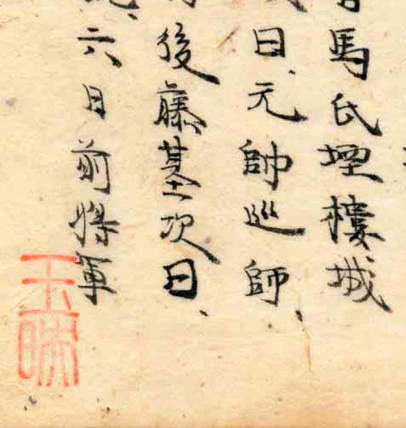 馬氏堙樓城
曰、元帥巡師、
後藤基次曰、
六日前將軍